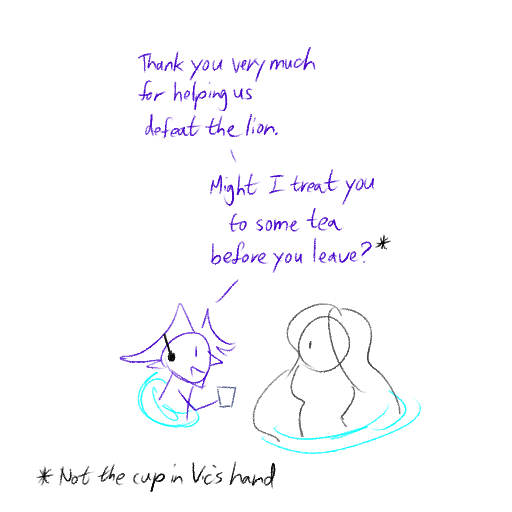 Thank you very much
for helping us
defeat the lion.
Might I treat you
to some tea
before you leave?*
* Not the cup in Vic's hand